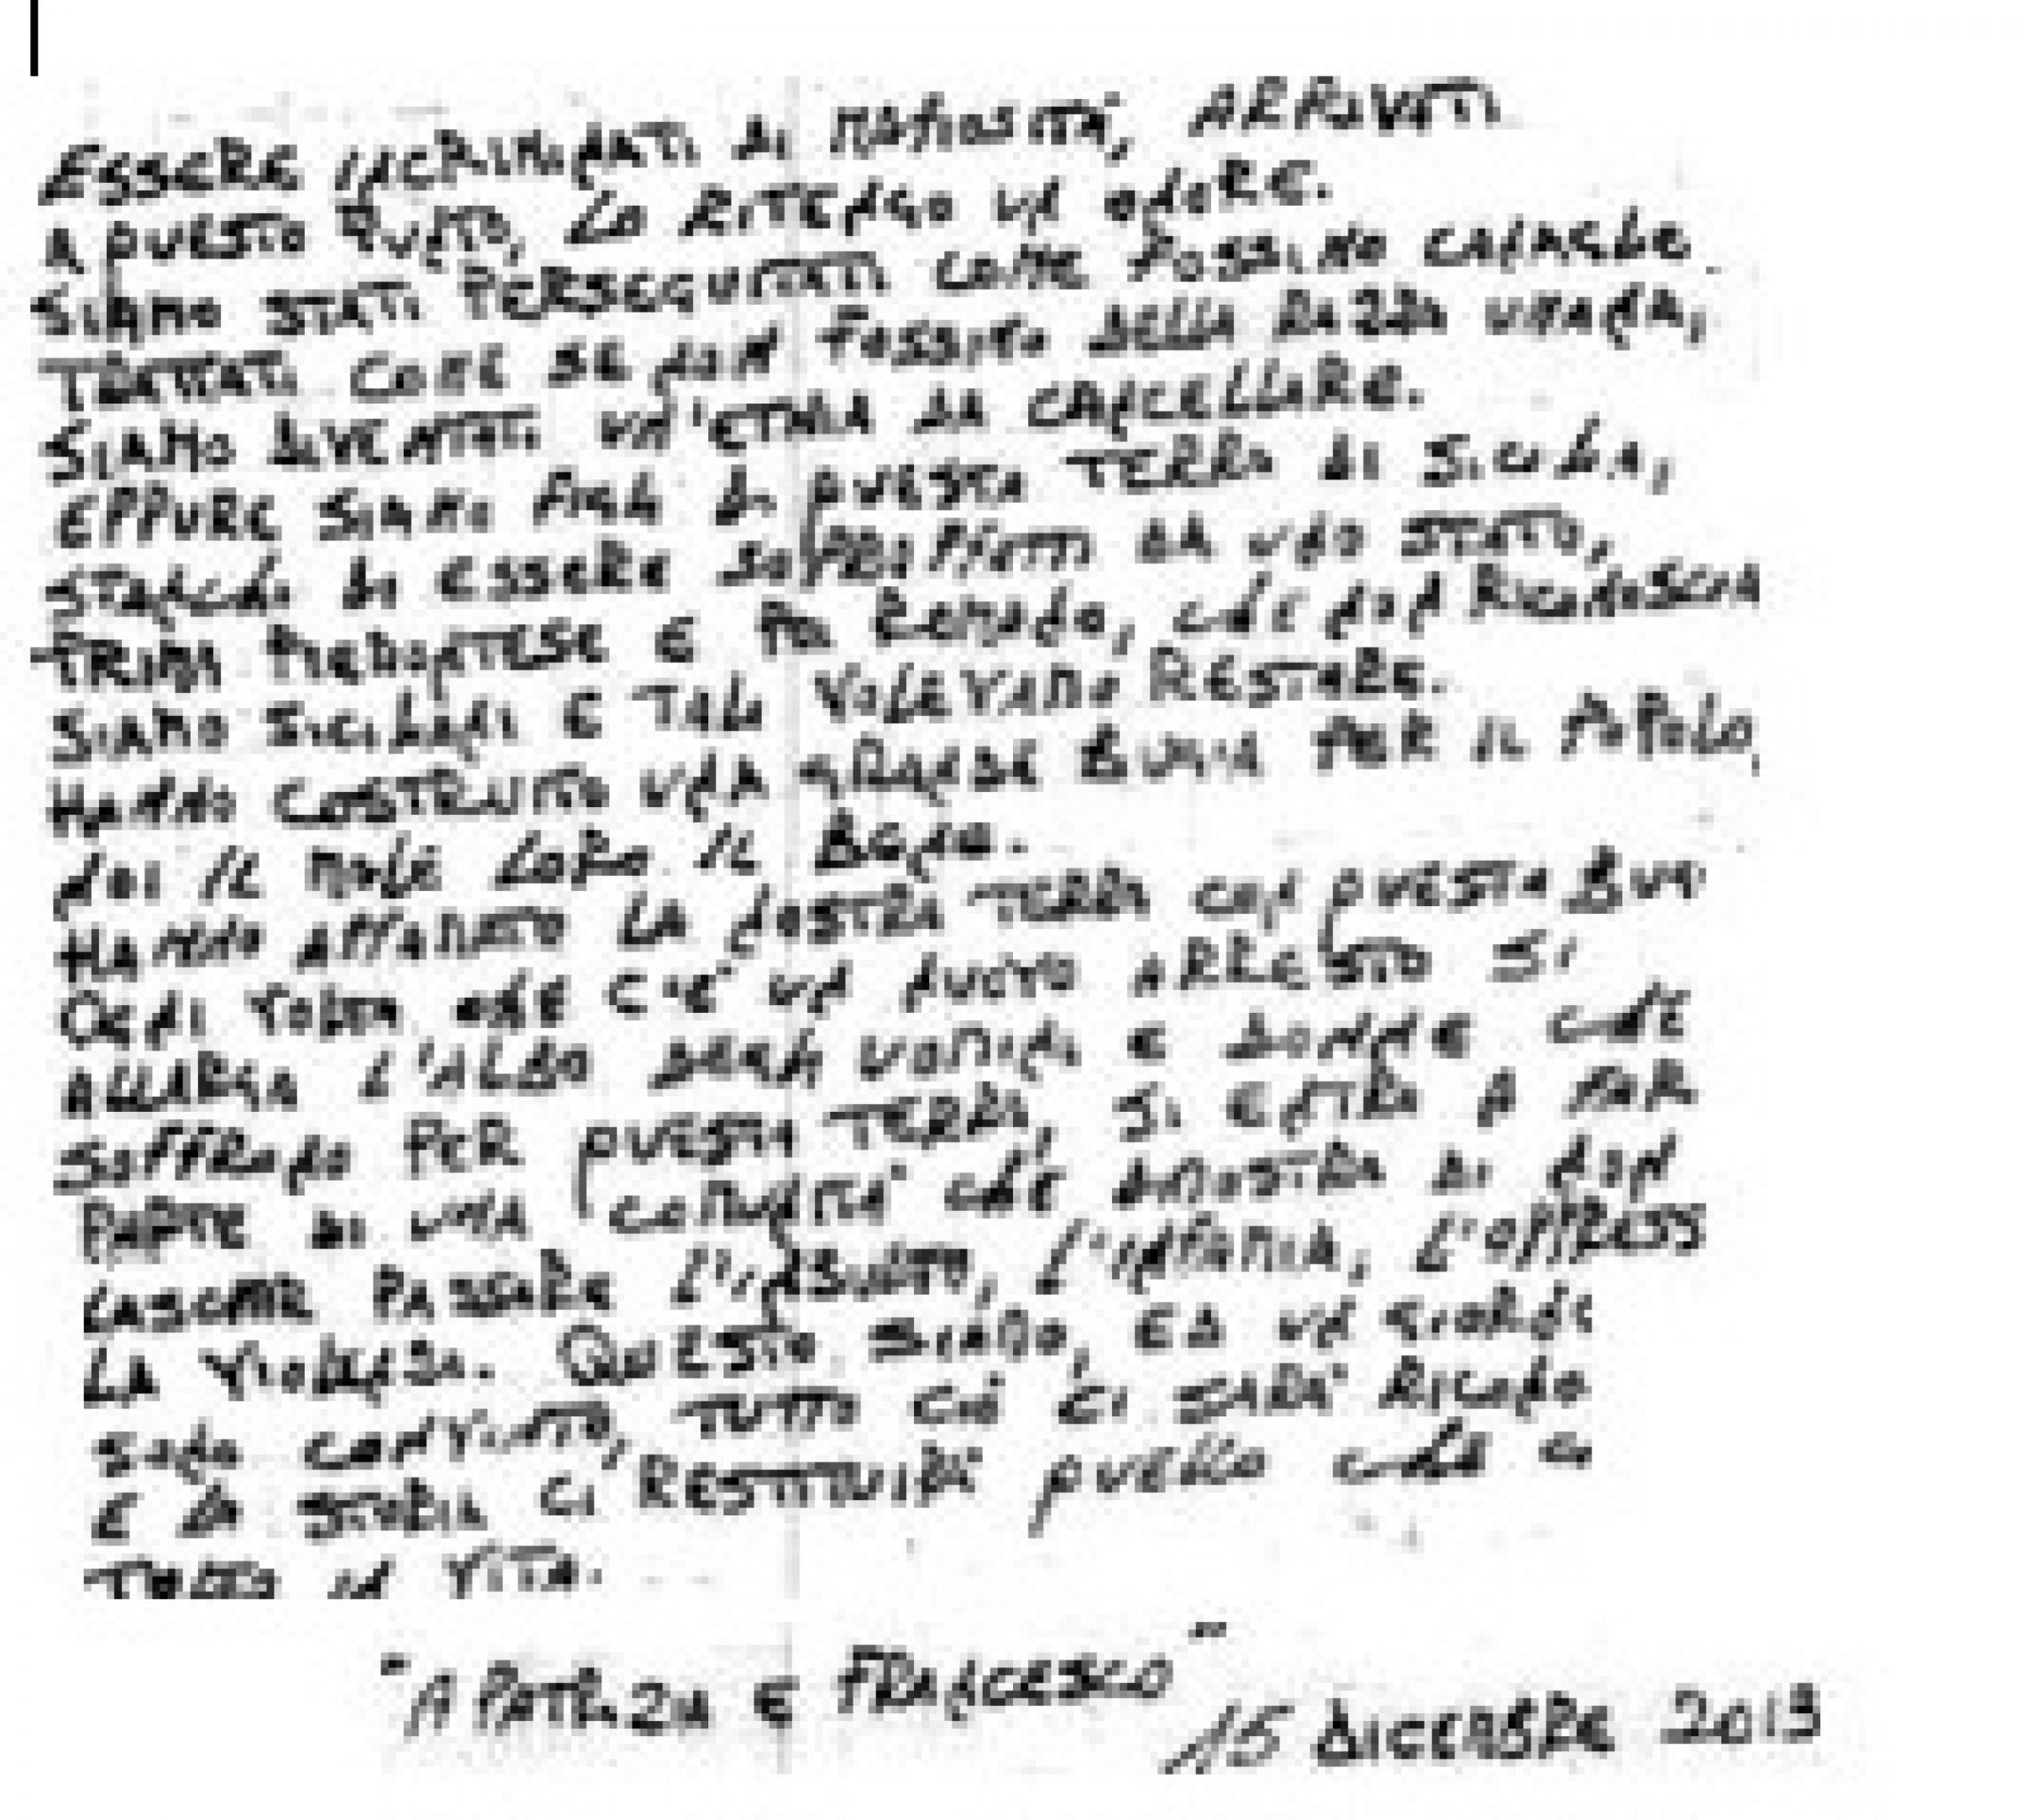 ESSERE INCRIMINATI DI MAFIOSITÀ, ARRIVATI
A QUESTO PUNTO, LO RITENGO UN ONORE.
SIAMO STATI PERSEGUITATI COME FOSSIMO CANAGLIE
TRATTATI COME SE NON FOSSIMO DELLA RAZZA UMANA,
SIAMO DIVENTATI UN'ETNIA DA CANCELLARE.
EPPURE SIAMO FIGLI DI QUESTA TERRA DI SICILIA,
STANCHI DI ESSERE SOPRAFFATTI DA UNO STATO,
PRIMA PIEMONTESE E POI ROMANO, CHE NON RICONOSCIA
SIAMO SICILIANI E TALI VOLEVAMO RESTARE.
HANNO COSTRUITO UNA GRANDE BUGIA PER IL POPOLO,
NOI IL MALE LORO IL BENE.
HANNO AFFAMATO LA NOSTRA TERRA CON QUESTA BUGI
OGNI VOLTA CHE C'È UN NUOVO ARRESTO SI
ALLARGA L'ALBO DEGLI UOMINI E DONNE CHE
SOFFRONO PER QUESTA TERRA, SI ENTRA A FAR
PARTE DI UNA COMUNITÀ CHE DIMOSTRA DI NON
LASCIAR PASSARE L'INSULTO, L'INFAMIA, L'OPPRESS
LA VIOLENZA. QUESTO SIAMO, ED UN GIORNO
SONO CONVINTO, TUTTO CIÒ CI SARÀ RICONO
E LA STORIA CI RESTITUIRÀ QUELLO CHE CI
TOLTO IN VITA.
"A PATRIZIA E FRANCESCO"
15 DICEMBRE 2013